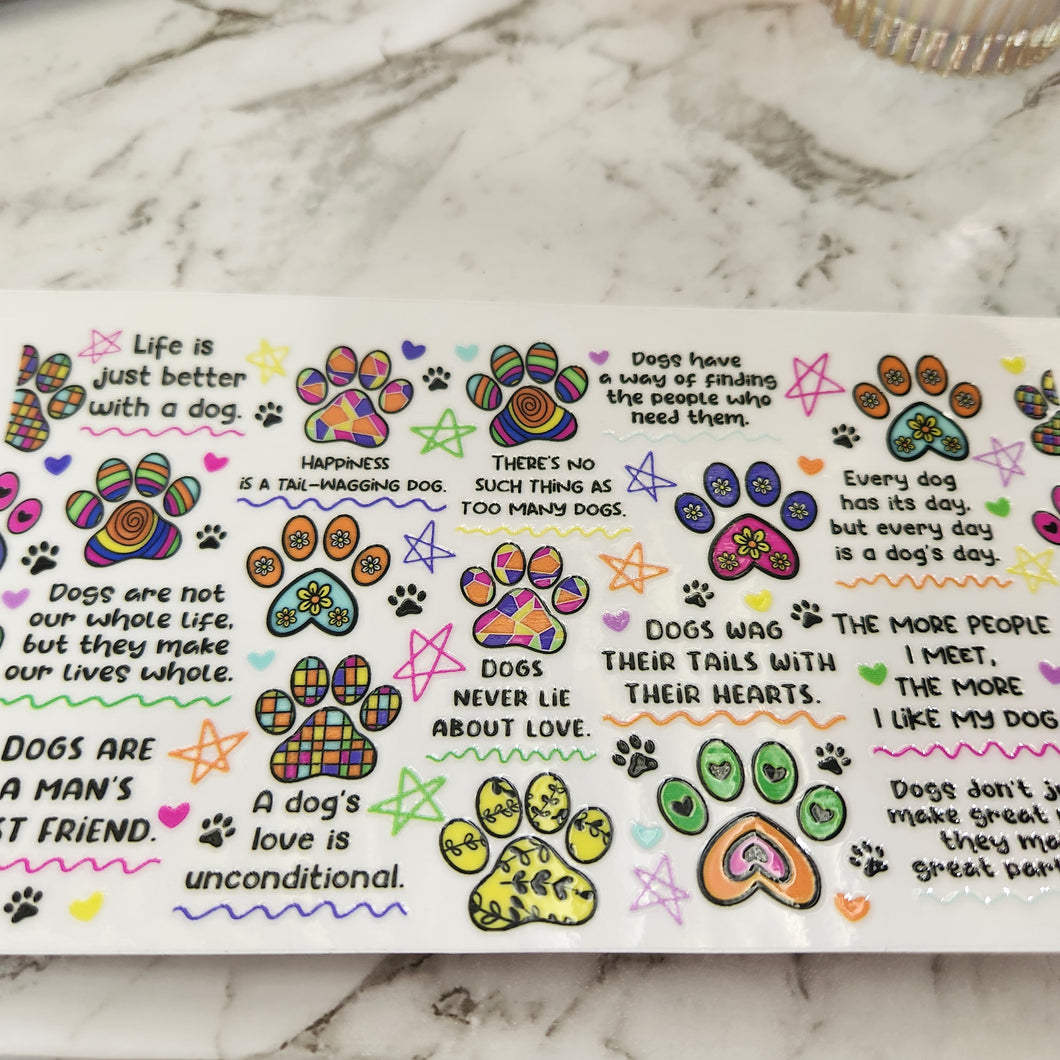 Life is
just better
with a dog.
HAPPINESS
IS A TAIL-WAGGING DOG.
THERE'S NO
SUCH THING AS
TOO MANY DOGS.
Dogs have
a way of finding
the people who
need them.
Every dog
has its day,
but every day
is a dog's day.
Dogs are not
our whole life,
but they make
our lives whole.
DOGS
NEVER LIE
ABOUT LOVE.
DOGS WAG
THEIR TAILS WITH
THEIR HEARTS.
THE MORE PEOPLE
I MEET,
THE MORE
I LIKE MY DOG
DOGS ARE
A MAN'S
ST FRIEND.
A dog's
love is
unconditional.
Dogs don't
make great
they
great